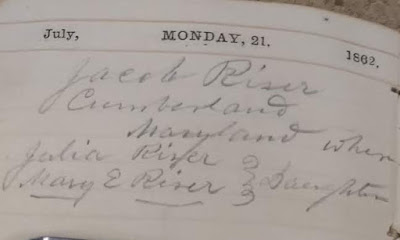 July, MONDAY, 21. 1862.
Jacob Riser
Cumberland
Maryland when
Julia Riser
Mary E Riser } Daughter